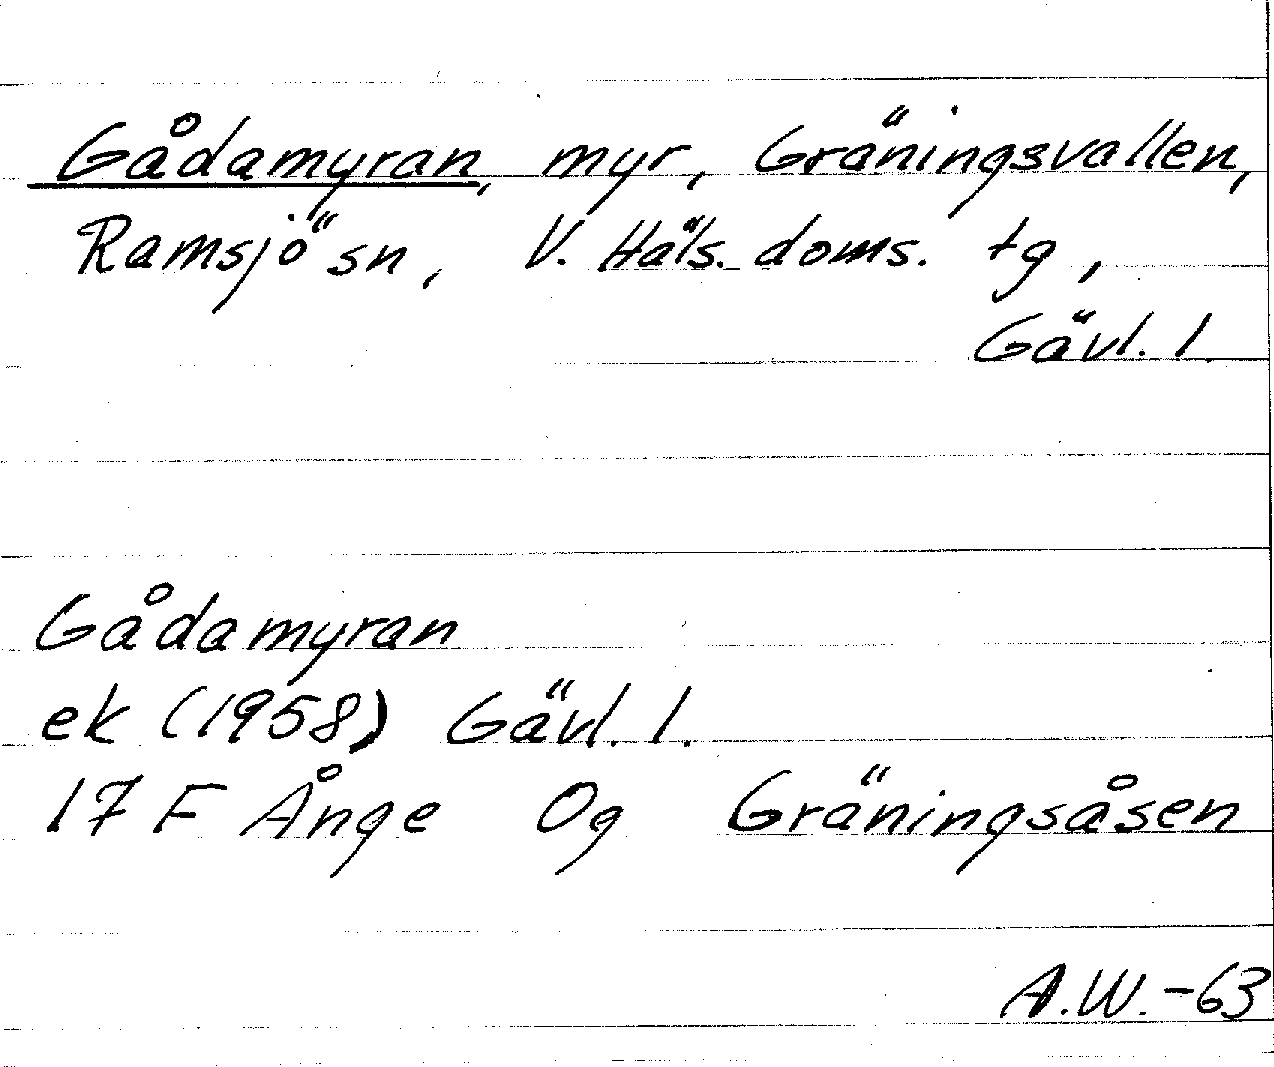 Gådamyran, myr, Gräningsvallen,
Ramsjö sn, V. Häls. doms. tg,
Gävl. l.
Gådamyran
ek (1958) Gävl. l.
17 F Ånge 0g Gräningsåsen
A.W.-63